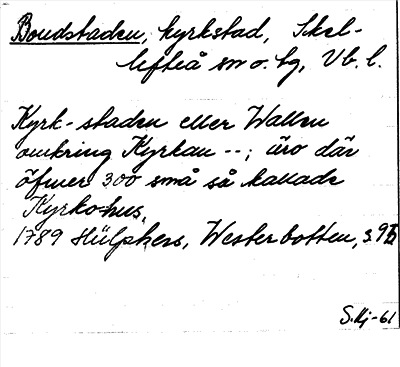 Bondstaden, kyrkstad, Skel-
lefteå sn o. tg, Vb. l.
Kyrk-staden eller Wallen
omkring Kyrkan --; äro där
öfwer 300 små så kallade
Kyrko-hus,
1789 Hülphers, Westerbotten, s. 95
S.Kj-61